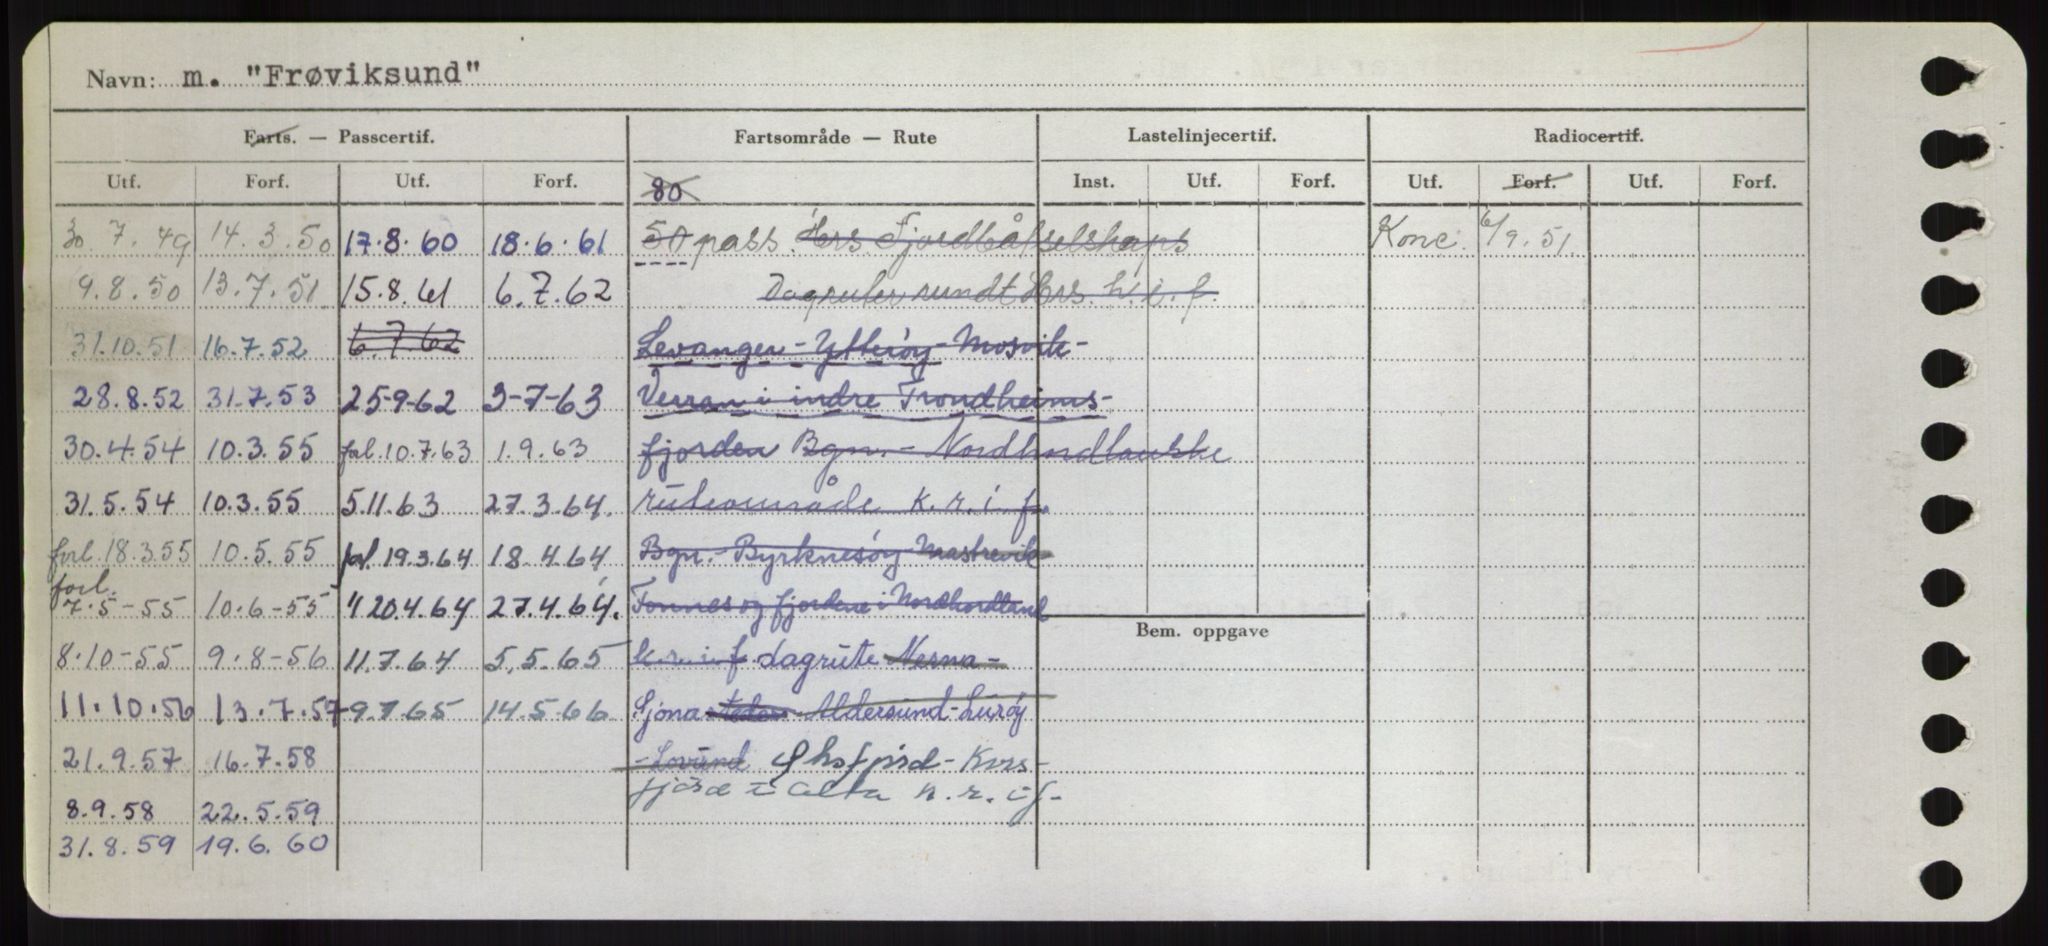 Navn: m. "Frøviksund"
Farts. — Passcertif. Fartsområde — Rute Lastelinjecertif. Radiocertif.
Utf. Forf. Utf. Forf. 80 Inst. Utf. Forf. Utf. Forf. Utf. Forf.
30.7.49 14.3.50 17.8.60 18.6.61 50 pass. Hrs Fjordbåtselskaps Konc. 6/9.51.
9.8.50 13.7.51 15.8.61 6.7.62 Dagruter rundt Hrs k.r.i.f.
31.10.51 16.7.52 6.7.62 Levanger - Ytterøy - Mosvik -
28.8.52 31.7.53 25-9-62 3-7-63 Verran i indre Trondheims-
30.4.54 10.3.55 forl. 10.7.63 1.9.63 fjorden Bgn. - Nordhordlandske
31.5.54 10.3.55 5.11.63 27.3.64. ruteområde k.r.i.f.
forl. 18.3.55 10.5.55 forl. 19.3.64 18.4.64 Bgn. - Byrknesøy - Mastrevik
forl.
7.5-55 10.6-55 " 20.4.64 27.4.64. Fonnes og fjordene i Nordhordland
8.10-55 9.8-56 11.7.64 5.5.65 k.r.i.f. dagrute Nesna -
11.10.56 13.7.57 9.7.65 14.5.66 Sjona - Aldersund - Lurøy
21.9.57 16.7.58 - Lovund Øksfjord - Kors-
fjord i Alta k.r.i.f.
8.9.58 22.5.59
31.8.59 19.6.60
Bem. oppgave